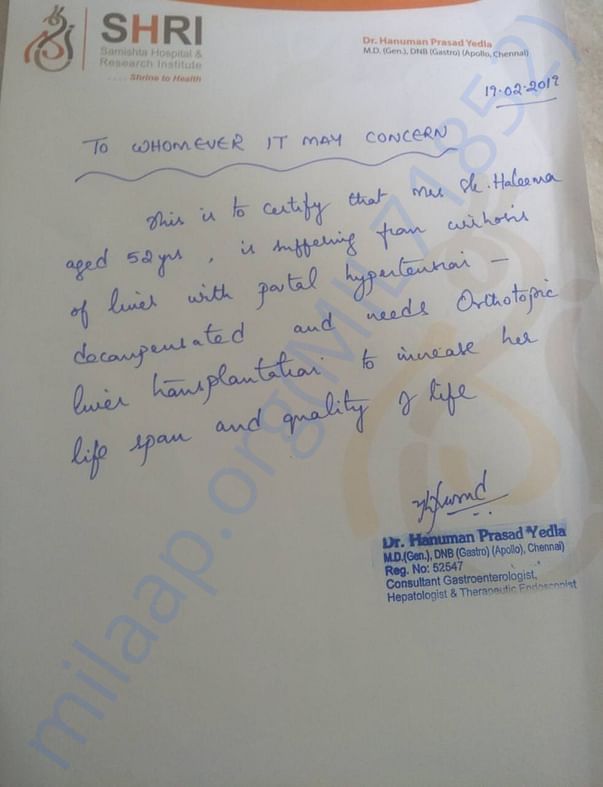 SHRI
Samishta Hospital &
Research Institute
.... Shrine to Health
Dr. Hanuman Prasad Yedla
M.D. (Gen.), DNB (Gastro) (Apollo, Chennai)
19-02-2019
TO WHOMEVER IT MAY CONCERN
This is to certify that Mrs Sk. Haleema
aged 52 yrs, is suffering from cirrhosis
of liver with portal hypertension –
decompensated and needs Orthotopic
liver transplantation to increase her
life span and quality of life
Dr. Hanuman Prasad Yedla
M.D.(Gen.), DNB (Gastro) (Apollo), Chennai)
Reg. No: 52547
Consultant Gastroenterologist,
Hepatologist & Therapeutic Endoscopist
milaap.org(MIL71852)